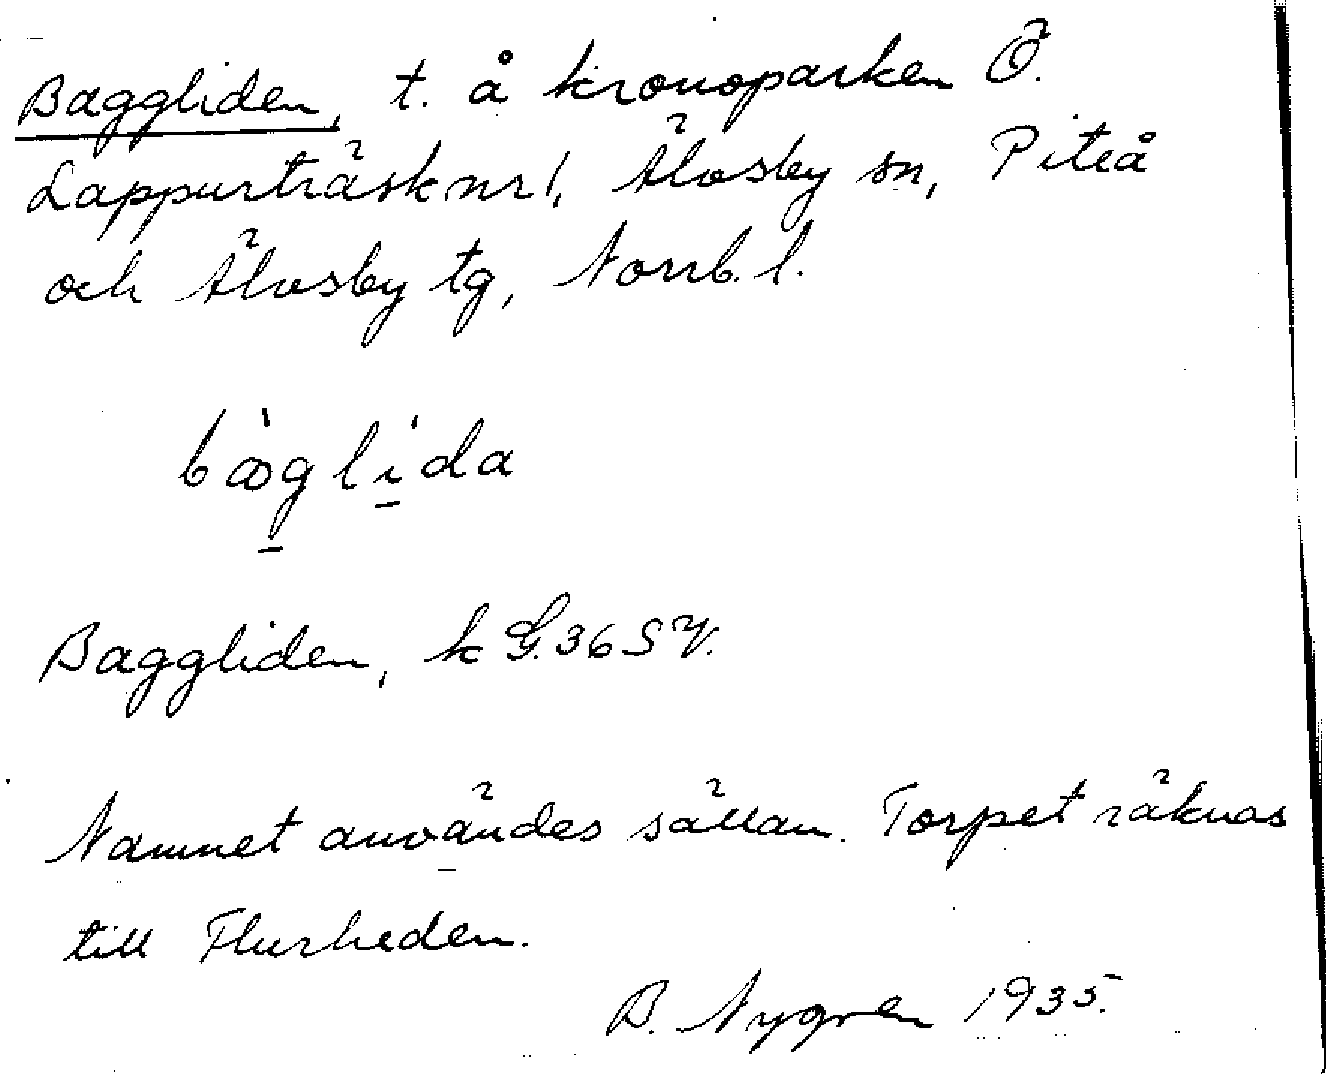 Baggliden, t. å kronoparken Ö.
Lappurträsk nr 1, Älvsby sn, Piteå
och Älvsby tg, Norrb. l.
bæ̀glìda
Baggliden, k G. 36 SV.
Namnet användes sällan. Torpet räknas
till Flurheden.
B. Nygren 1935.